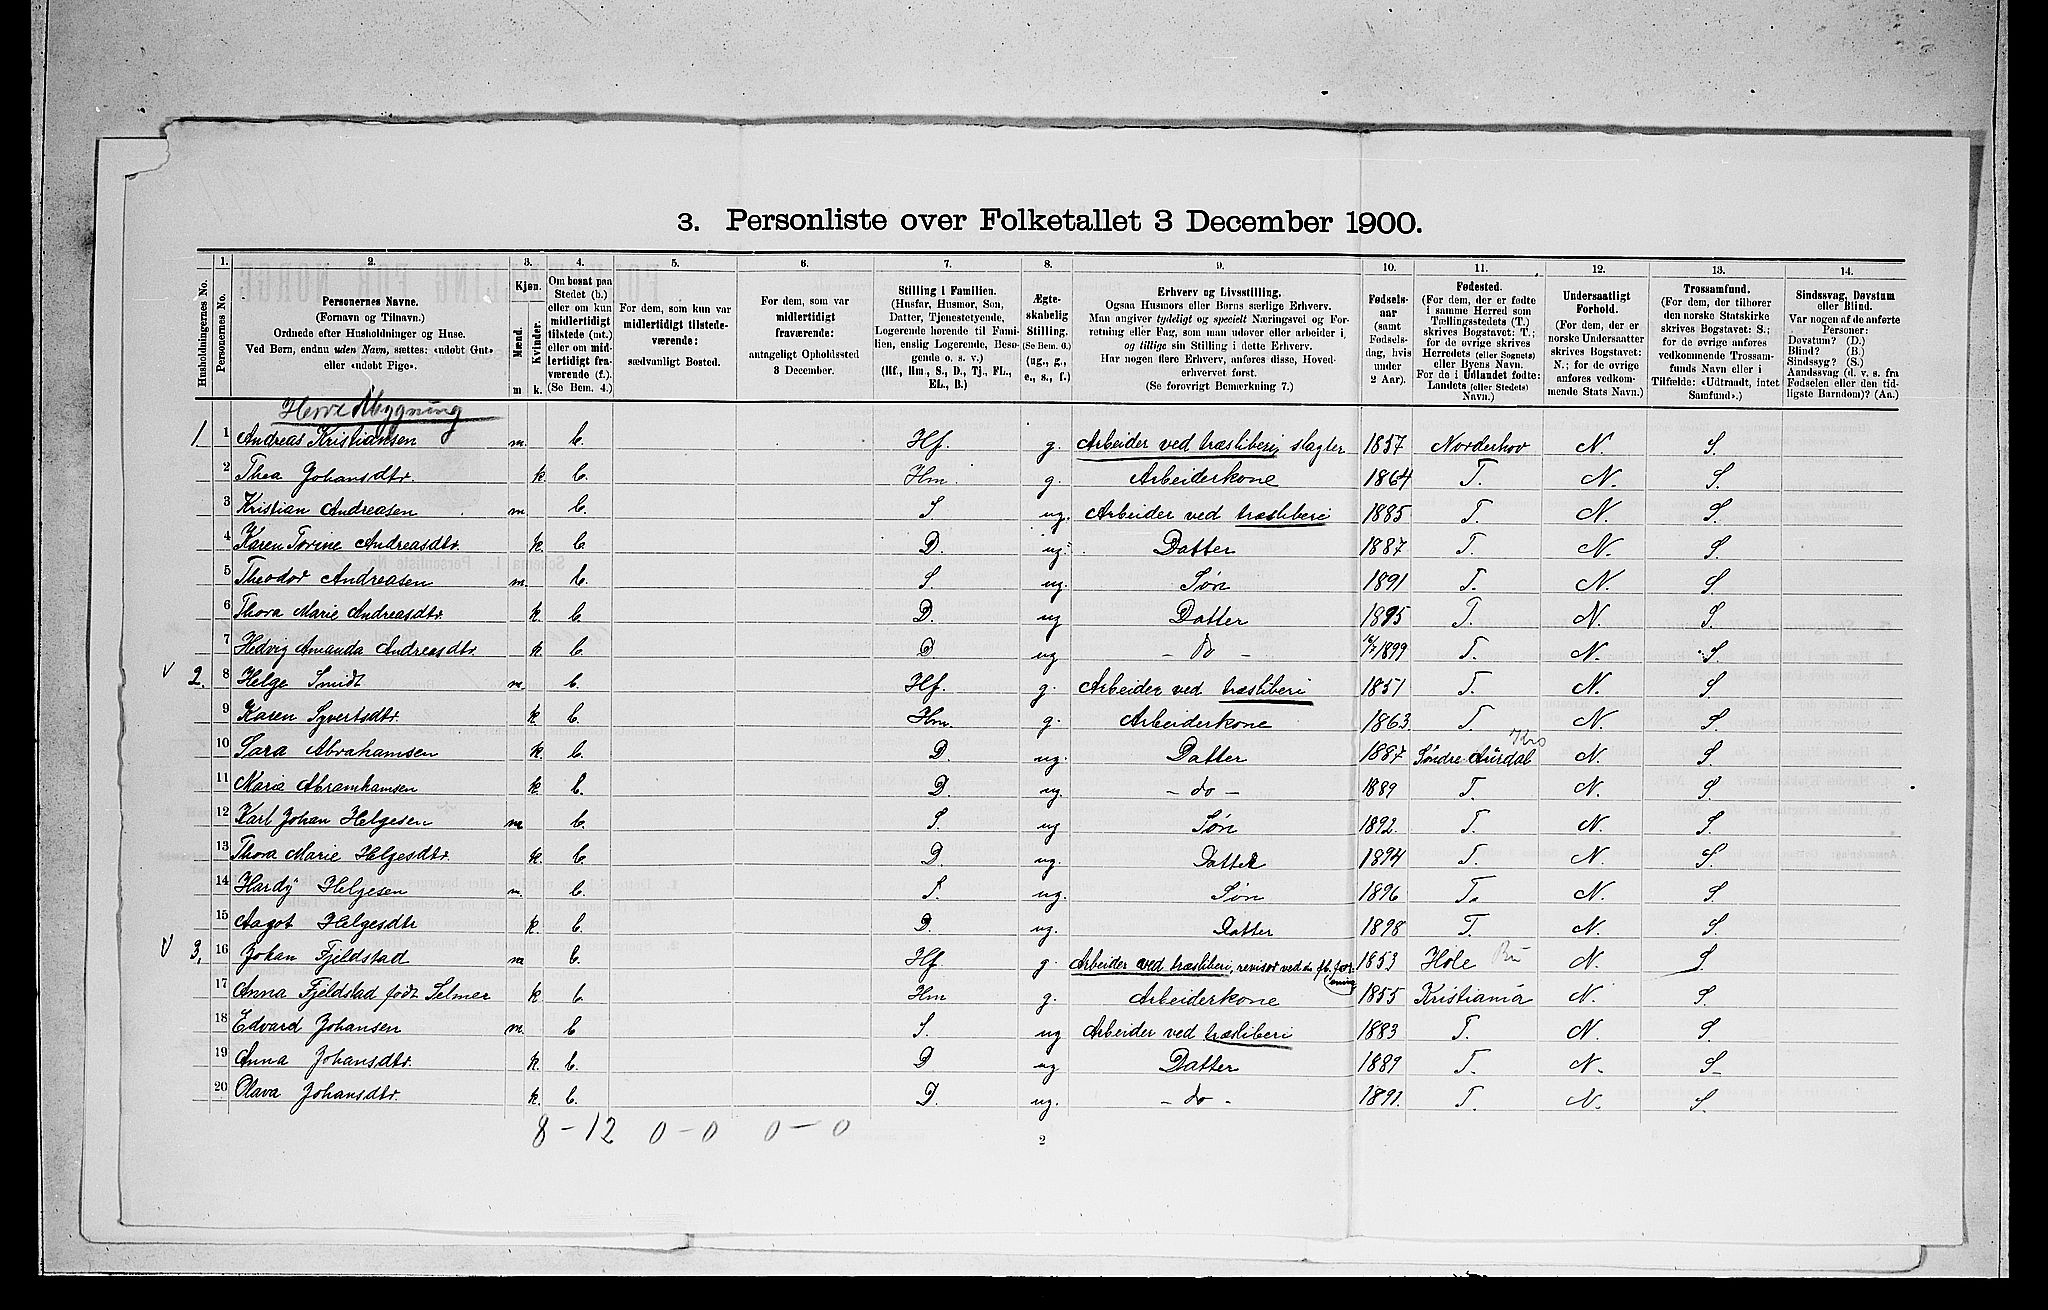 3. Personliste over Folketallet 3 December 1900.
Husholdningernes No.
1. Personernes No.
2. Personernes Navne. (Fornavn og Tilnavn.) Ordnede efter Husholdninger og Huse. Ved Børn, endnu uden Navn, sættes: «udøbt Gut» eller «udøbt Pige».
3. Kjøn. Mænd. m Kvinder. k.
4. Om bosat paa Stedet (b.) eller om kun midlertidigt tilstede (mt.) eller om midlertidigt fraværende (f.). (Se Bem. 4.)
5. For dem, som kun var midlertidigt tilstedeværende: sædvanligt Bosted.
6. For dem, som var midlertidigt fraværende: antageligt Opholdssted 3 December.
7. Stilling i Familien. (Husfar, Husmor, Søn, Datter, Tjenestetyende, Logerende hørende til Familien, enslig Logerende, Besøgende o. s. v.) (Hf., Hm., S., D., Tj., FL., EL., B.)
8. Ægteskabelig Stilling. (Se Bem. 6.) (ug., g., e., s., f.)
9. Erhverv og Livsstilling. Ogsaa Husmors eller Børns særlige Erhverv. Man angiver tydeligt og specielt Næringsvei og Forretning eller Fag, som man udøver eller arbeider i, og tillige sin Stilling i dette Erhverv. Har nogen flere Erhverv, anføres disse, Hovederhvervet først. (Se forøvrigt Bemærkning 7.)
10. Fødselsaar (samt Fødselsdag, hvis under 2 Aar).
11. Fødested. (For dem, der er fødte i samme Herred som Tællingsstedets (T.) skrives Bogstavet: T.; for de øvrige skrives Herredets (eller Sognets) eller Byens Navn. For de i Udlandet fødte: Landets (eller Stedets) Navn.)
12. Undersaatligt Forhold. (For dem, der er norske Undersaatter skrives Bogstavet: N.; for de øvrige anføres vedkommende Stats Navn.)
13. Trossamfund. (For dem, der tilhører den norske Statskirke skrives Bogstavet: S.; for de øvrige anføres vedkommende Trossamfunds Navn eller i Tilfælde: «Udtraadt, intet Samfund».)
14. Sindssvag, Døvstum eller Blind. Var nogen af de anførte Personer: Døvstum? (D.) Blind? (B.) Sindssyg? (S.) Aandssvag (d. v. s. fra Fødselen eller den tidligste Barndom)? (Aa.)
Nygning
1. 1 Andreas Kristiansen m. b. Hf. g. Arbeider ved træsliberi, slagter 1857 Norderhov N. S.
2 Thea Johansdtr. k. b. Hm. g. Arbeiderkone 1864 T. N. S.
3 Kristian Andreasen m. b. S ug. Arbeider ved træsliberi 1885 T. N. S.
4 Karen Torine Andreasdtr. k. b. D. ug. Datter 1887 T. N. S.
5 Theodor Andreasen m. b. S ug. Søn 1891 T. N. S.
6 Thora Marie Andreasdtr. k. b. D. ug Datter 1895 T. N. S.
7 Hedvig Amanda Andreasdtr. k. b. D. ug - do - 1899 T. N. S.
v 2. 8 Helge Smidt m. b. Hf. g. Arbeider ved træsliberi 1851 T. N. S
9 Karen Syvertsdtr. k. b. Hm. g. Arbeiderkone 1863. T. N. S.
10 Sara Abrahamsen k. b. D. ug. Datter 1887 Søndre Aurdal N. S.
11 Maria Abramhamsen k. b. D. ug. - do - 1889 T. N. S.
12 Karl Johan Helgesen m b. S. ug Søn 1892. T. N. S.
13 Thora Marie Helgesdtr. k. b. D. ug. Datter 1894 T. N. S.
14 Hardy Helgesen m. b. S. ug. Søn 1896 T. N. S.
15 Aagot Helgesdtr k. b. D. ug. Datter 1898 T. N. S.
v 3. 16 Johan Fjeldstad m b. Hf. g. Arbeider ved træsliberi, revisor ved 1853 Hole Bu N. S.
17 Anna Fjeldstad født Selmer k b. Hm g. Arbeiderkone 1855 Kristiania N. S.
18 Edvard Johansen m. b S. ug Arbeider ved træsliberi 1883 T. N. S.
19 Anna Johansdtr. k. b. D ug Datter 1889 T. N. S
20 Olava Johansdtr. k. b. D. ug. - do - 1891. T. N. S.
8 - 12 0 - 0 0 - 0
2